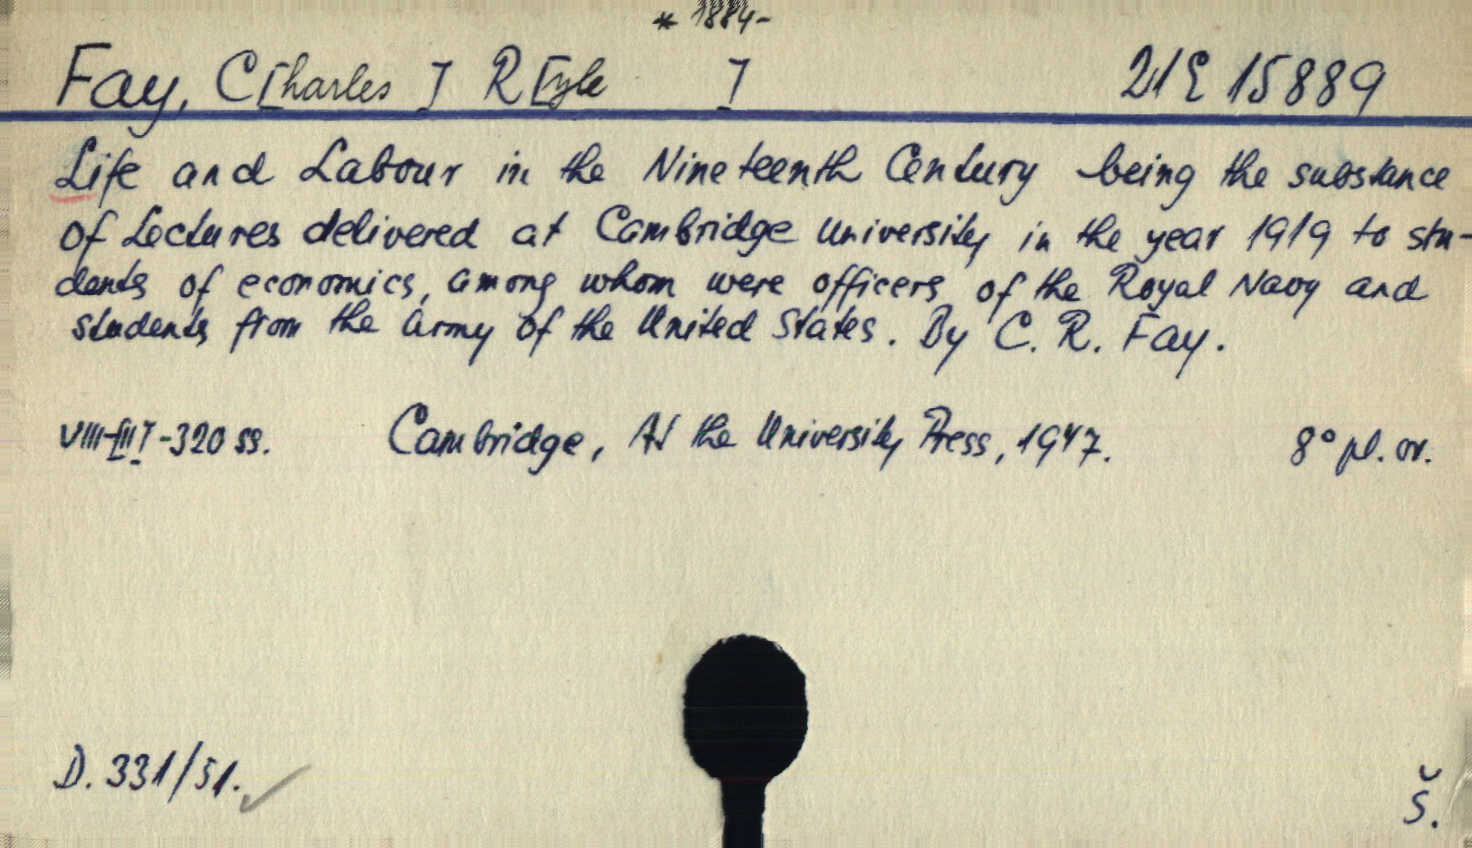 * 1884-
Fay, C[harles ] R[yle ] 21E 15889
Life and Labour in the Nineteenth Century being the substance
of Lectures delivered at Cambridge University in the year 1919 to stu-
dents of economics, among whom were officers of the Royal Navy and
students from the Army of the United States. By C. R. Fay.
VIII-[II]-320 ss. Cambridge, At the University Press, 1947. 8° pl. or.
D. 331/51.
Š.